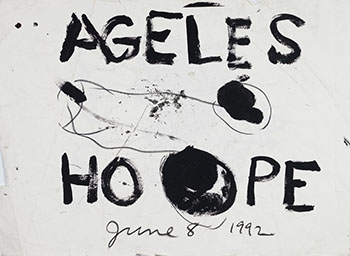 AGELES
HOPE
June 8 1992